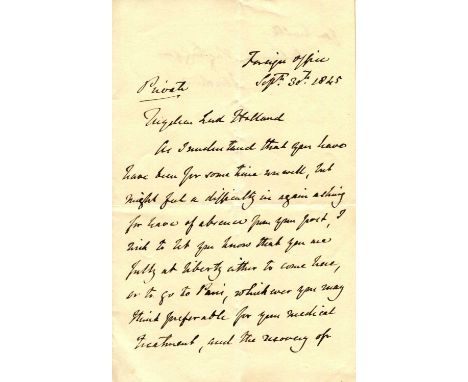 Foreign Office
Sept. 30th. 1845
Private
My dear Lord Holland
As I understand that you have
have been for some time unwell, but
might feel a difficulty in again asking
for leave of absence from your post, I
wish to let you know that you are
fully at liberty either to come here,
or to go to Paris, whichever you may
think preferable for your medical
treatment, and the recovery of